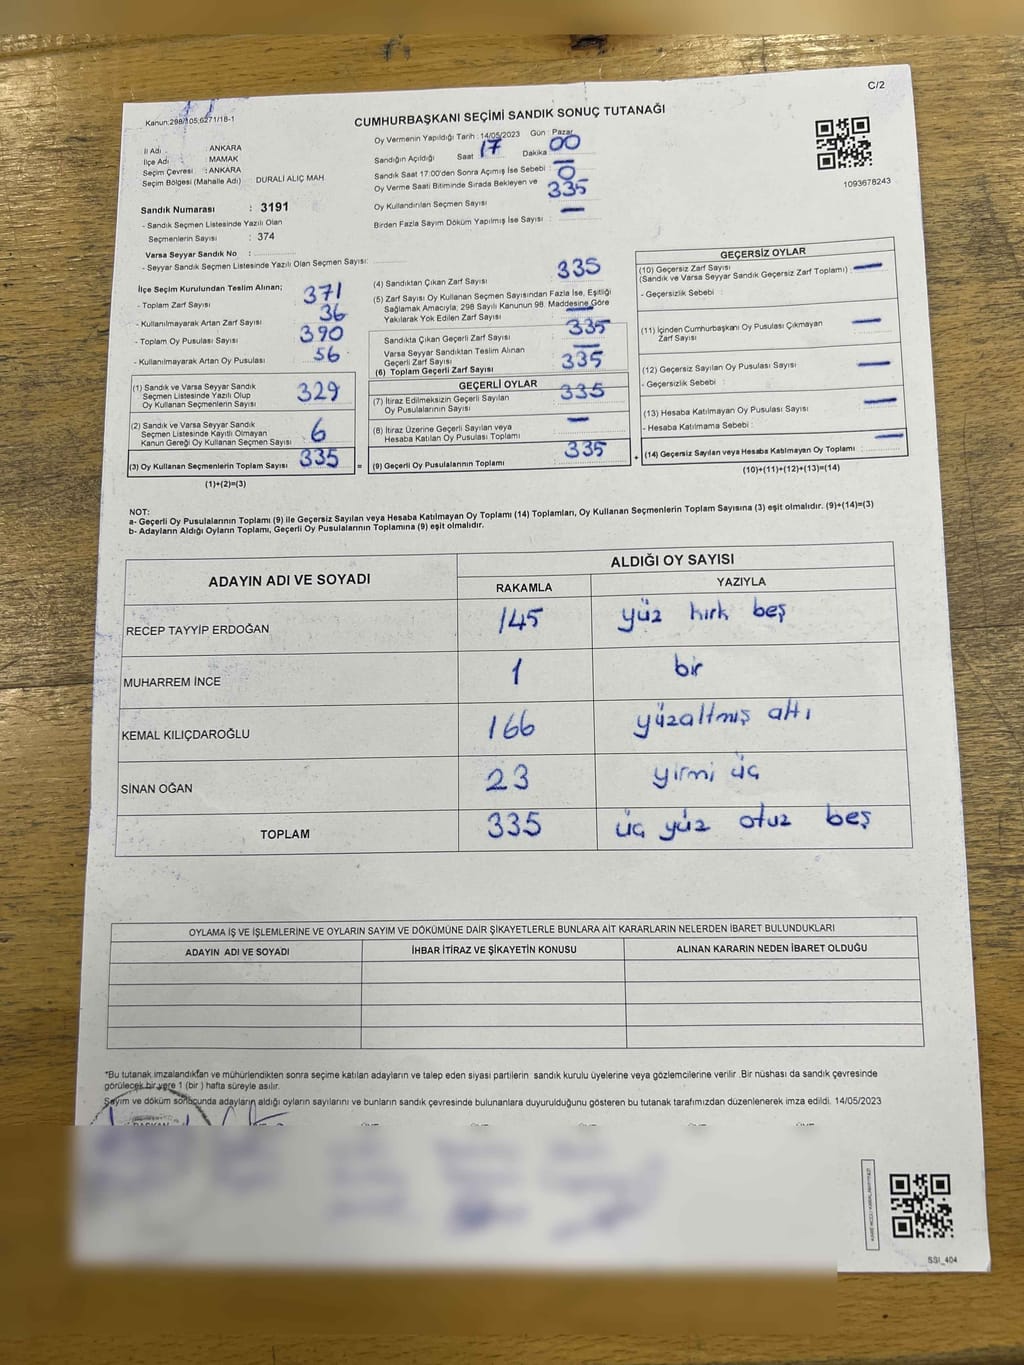 C/2
Kanun:298/105,6271/18-1
CUMHURBAŞKANI SEÇİMİ SANDIK SONUÇ TUTANAĞI
Oy Vermenin Yapıldığı Tarih : 14/05/2023 Gün : Pazar
İl Adı : ANKARA
İlçe Adı : MAMAK
Seçim Çevresi : ANKARA
Seçim Bölgesi (Mahalle Adı) DURALİ ALIÇ MAH.
Sandığın Açıldığı Saat 17 Dakika 00
Sandık Saat 17:00'den Sonra Açımış İse Sebebi : —
Oy Verme Saati Bitiminde Sırada Bekleyen ve 0
Oy Kullandırılan Seçmen Sayısı 335
Birden Fazla Sayım Döküm Yapılmış İse Sayısı : —
1093678243
Sandık Numarası : 3191
- Sandık Seçmen Listesinde Yazılı Olan
Seçmenlerin Sayısı : 374
Varsa Seyyar Sandık No :
- Seyyar Sandık Seçmen Listesinde Yazılı Olan Seçmen Sayısı:
İlçe Seçim Kurulundan Teslim Alınan;
- Toplam Zarf Sayısı 371
- Kullanılmayarak Artan Zarf Sayısı 36
- Toplam Oy Pusulası Sayısı 390
- Kullanılmayarak Artan Oy Pusulası 56
(1) Sandık ve Varsa Seyyar Sandık
Seçmen Listesinde Yazılı Olup
Oy Kullanan Seçmenlerin Sayısı 329
(2) Sandık ve Varsa Seyyar Sandık
Seçmen Listesinde Kayıtlı Olmayan
Kanun Gereği Oy Kullanan Seçmen Sayısı 6
(3) Oy Kullanan Seçmenlerin Toplam Sayısı 335 =
(1)+(2)=(3)
(4) Sandıktan Çıkan Zarf Sayısı 335
(5) Zarf Sayısı Oy Kullanan Seçmen Sayısından Fazla İse, Eşitliği
Sağlamak Amacıyla; 298 Sayılı Kanunun 98. Maddesine Göre
Yakılarak Yok Edilen Zarf Sayısı —
Sandıkta Çıkan Geçerli Zarf Sayısı 335
Varsa Seyyar Sandıktan Teslim Alınan
Geçerli Zarf Sayısı —
(6) Toplam Geçerli Zarf Sayısı 335
GEÇERLİ OYLAR
(7) İtiraz Edilmeksizin Geçerli Sayılan
Oy Pusulalarının Sayısı 335
(8) İtiraz Üzerine Geçerli Sayılan veya
Hesaba Katılan Oy Pusulası Toplamı —
(9) Geçerli Oy Pusulalarının Toplamı 335 +
GEÇERSİZ OYLAR
(10) Geçersiz Zarf Sayısı
(Sandık ve Varsa Seyyar Sandık Geçersiz Zarf Toplamı) : —
- Geçersizlik Sebebi :
(11) İçinden Cumhurbaşkanı Oy Pusulası Çıkmayan
Zarf Sayısı —
(12) Geçersiz Sayılan Oy Pusulası Sayısı —
- Geçersizlik Sebebi :
(13) Hesaba Katılmayan Oy Pusulası Sayısı —
- Hesaba Katılmama Sebebi :
(14) Geçersiz Sayılan veya Hesaba Katılmayan Oy Toplamı : —
(10)+(11)+(12)+(13)=(14)
NOT:
a- Geçerli Oy Pusulalarının Toplamı (9) ile Geçersiz Sayılan veya Hesaba Katılmayan Oy Toplamı (14) Toplamları, Oy Kullanan Seçmenlerin Toplam Sayısına (3) eşit olmalıdır. (9)+(14)=(3)
b- Adayların Aldığı Oyların Toplamı, Geçerli Oy Pusulalarının Toplamına (9) eşit olmalıdır.
ADAYIN ADI VE SOYADI ALDIĞI OY SAYISI
RAKAMLA YAZIYLA
RECEP TAYYİP ERDOĞAN 145 yüz kırk beş
MUHARREM İNCE 1 bir
KEMAL KILIÇDAROĞLU 166 yüzaltmış altı
SİNAN OĞAN 23 yirmi üç
TOPLAM 335 üç yüz otuz beş
OYLAMA İŞ VE İŞLEMLERİNE VE OYLARIN SAYIM VE DÖKÜMÜNE DAİR ŞİKAYETLERLE BUNLARA AİT KARARLARIN NELERDEN İBARET BULUNDUKLARI
ADAYIN ADI VE SOYADI İHBAR İTİRAZ VE ŞİKAYETİN KONUSU ALINAN KARARIN NEDEN İBARET OLDUĞU
*Bu tutanak imzalandıktan ve mühürlendikten sonra seçime katılan adayların ve talep eden siyasi partilerin sandık kurulu üyelerine veya gözlemcilerine verilir .Bir nüshası da sandık çevresinde
görülecek bir yere 1 (bir ) hafta süreyle asılır.
Sayım ve döküm sonucunda adayların aldığı oyların sayılarını ve bunların sandık çevresinde bulunanlara duyurulduğunu gösteren bu tutanak tarafımızdan düzenlenerek imza edildi. 14/05/2023
BAŞKAN
SSİ_404